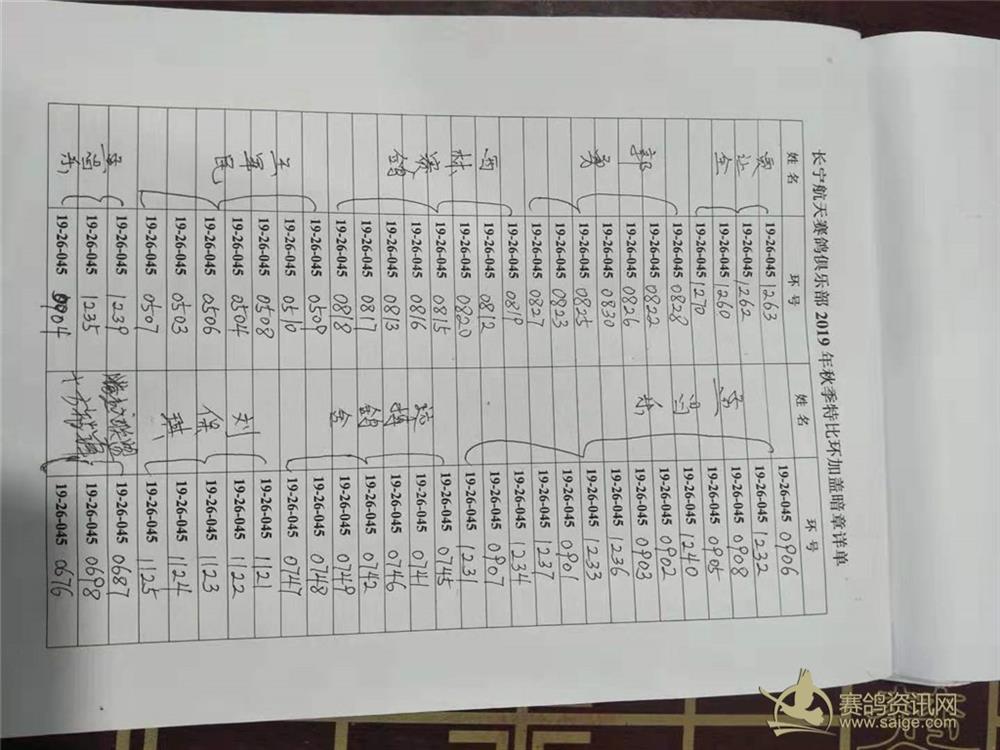 长宁航天赛鸽俱乐部2019年秋季特比环加盖暗章详单
姓名 环号 姓名 环号
19-26-045 1263 19-26-045 0906
19-26-045 1262 19-26-045 1232
19-26-045 1260 19-26-045 0908
19-26-045 1270 19-26-045 0905
郭勇 19-26-045 0828 19-26-045 1240
19-26-045 0822 19-26-045 0902
19-26-045 0826 19-26-045 0903
19-26-045 0830 19-26-045 1236
19-26-045 0825 19-26-045 1233
19-26-045 0823 19-26-045 0901
19-26-045 0827 19-26-045 1237
19-26-045 0819 19-26-045 1234
19-26-045 0812 19-26-045 0907
19-26-045 0820 19-26-045 1231
19-26-045 0815 19-26-045 0745
19-26-045 0816 19-26-045 0741
19-26-045 0813 19-26-045 0746
19-26-045 0817 19-26-045 0742
19-26-045 0818 19-26-045 0749
19-26-045 0509 19-26-045 0748
19-26-045 0510 19-26-045 0747
19-26-045 0508 刘保琪 19-26-045 1121
19-26-045 0504 19-26-045 1122
19-26-045 0506 19-26-045 1123
19-26-045 0503 19-26-045 1124
19-26-045 0507 19-26-045 1125
19-26-045 1239 19-26-045 0687
19-26-045 1235 19-26-045 0698
19-26-045 0904 19-26-045 0676
赛鸽资讯网
www.saige.com